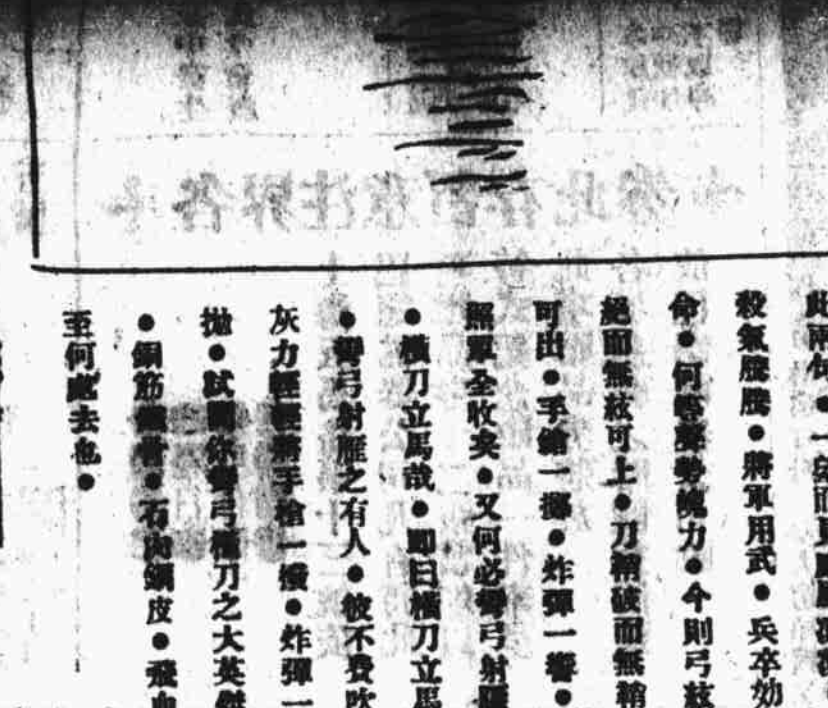 此兩句●一
殺氣騰騰●將軍用武●兵卒効
命●何等聲勢魄力●今則弓絃
絕而無絃可上●刀鞘破而無鞘
可出●手鎗一擲●炸彈一響●
照單全收矣●又何必彎弓射
●橫刀立馬哉●即曰橫刀立馬
●彎弓射雁之有人●彼不費吹
灰力輕輕將手槍一機●炸彈一
拋●試問你彎弓橫刀之大英傑
●銅筋鐵骨●石肉銅皮●飛血
至何處去也●